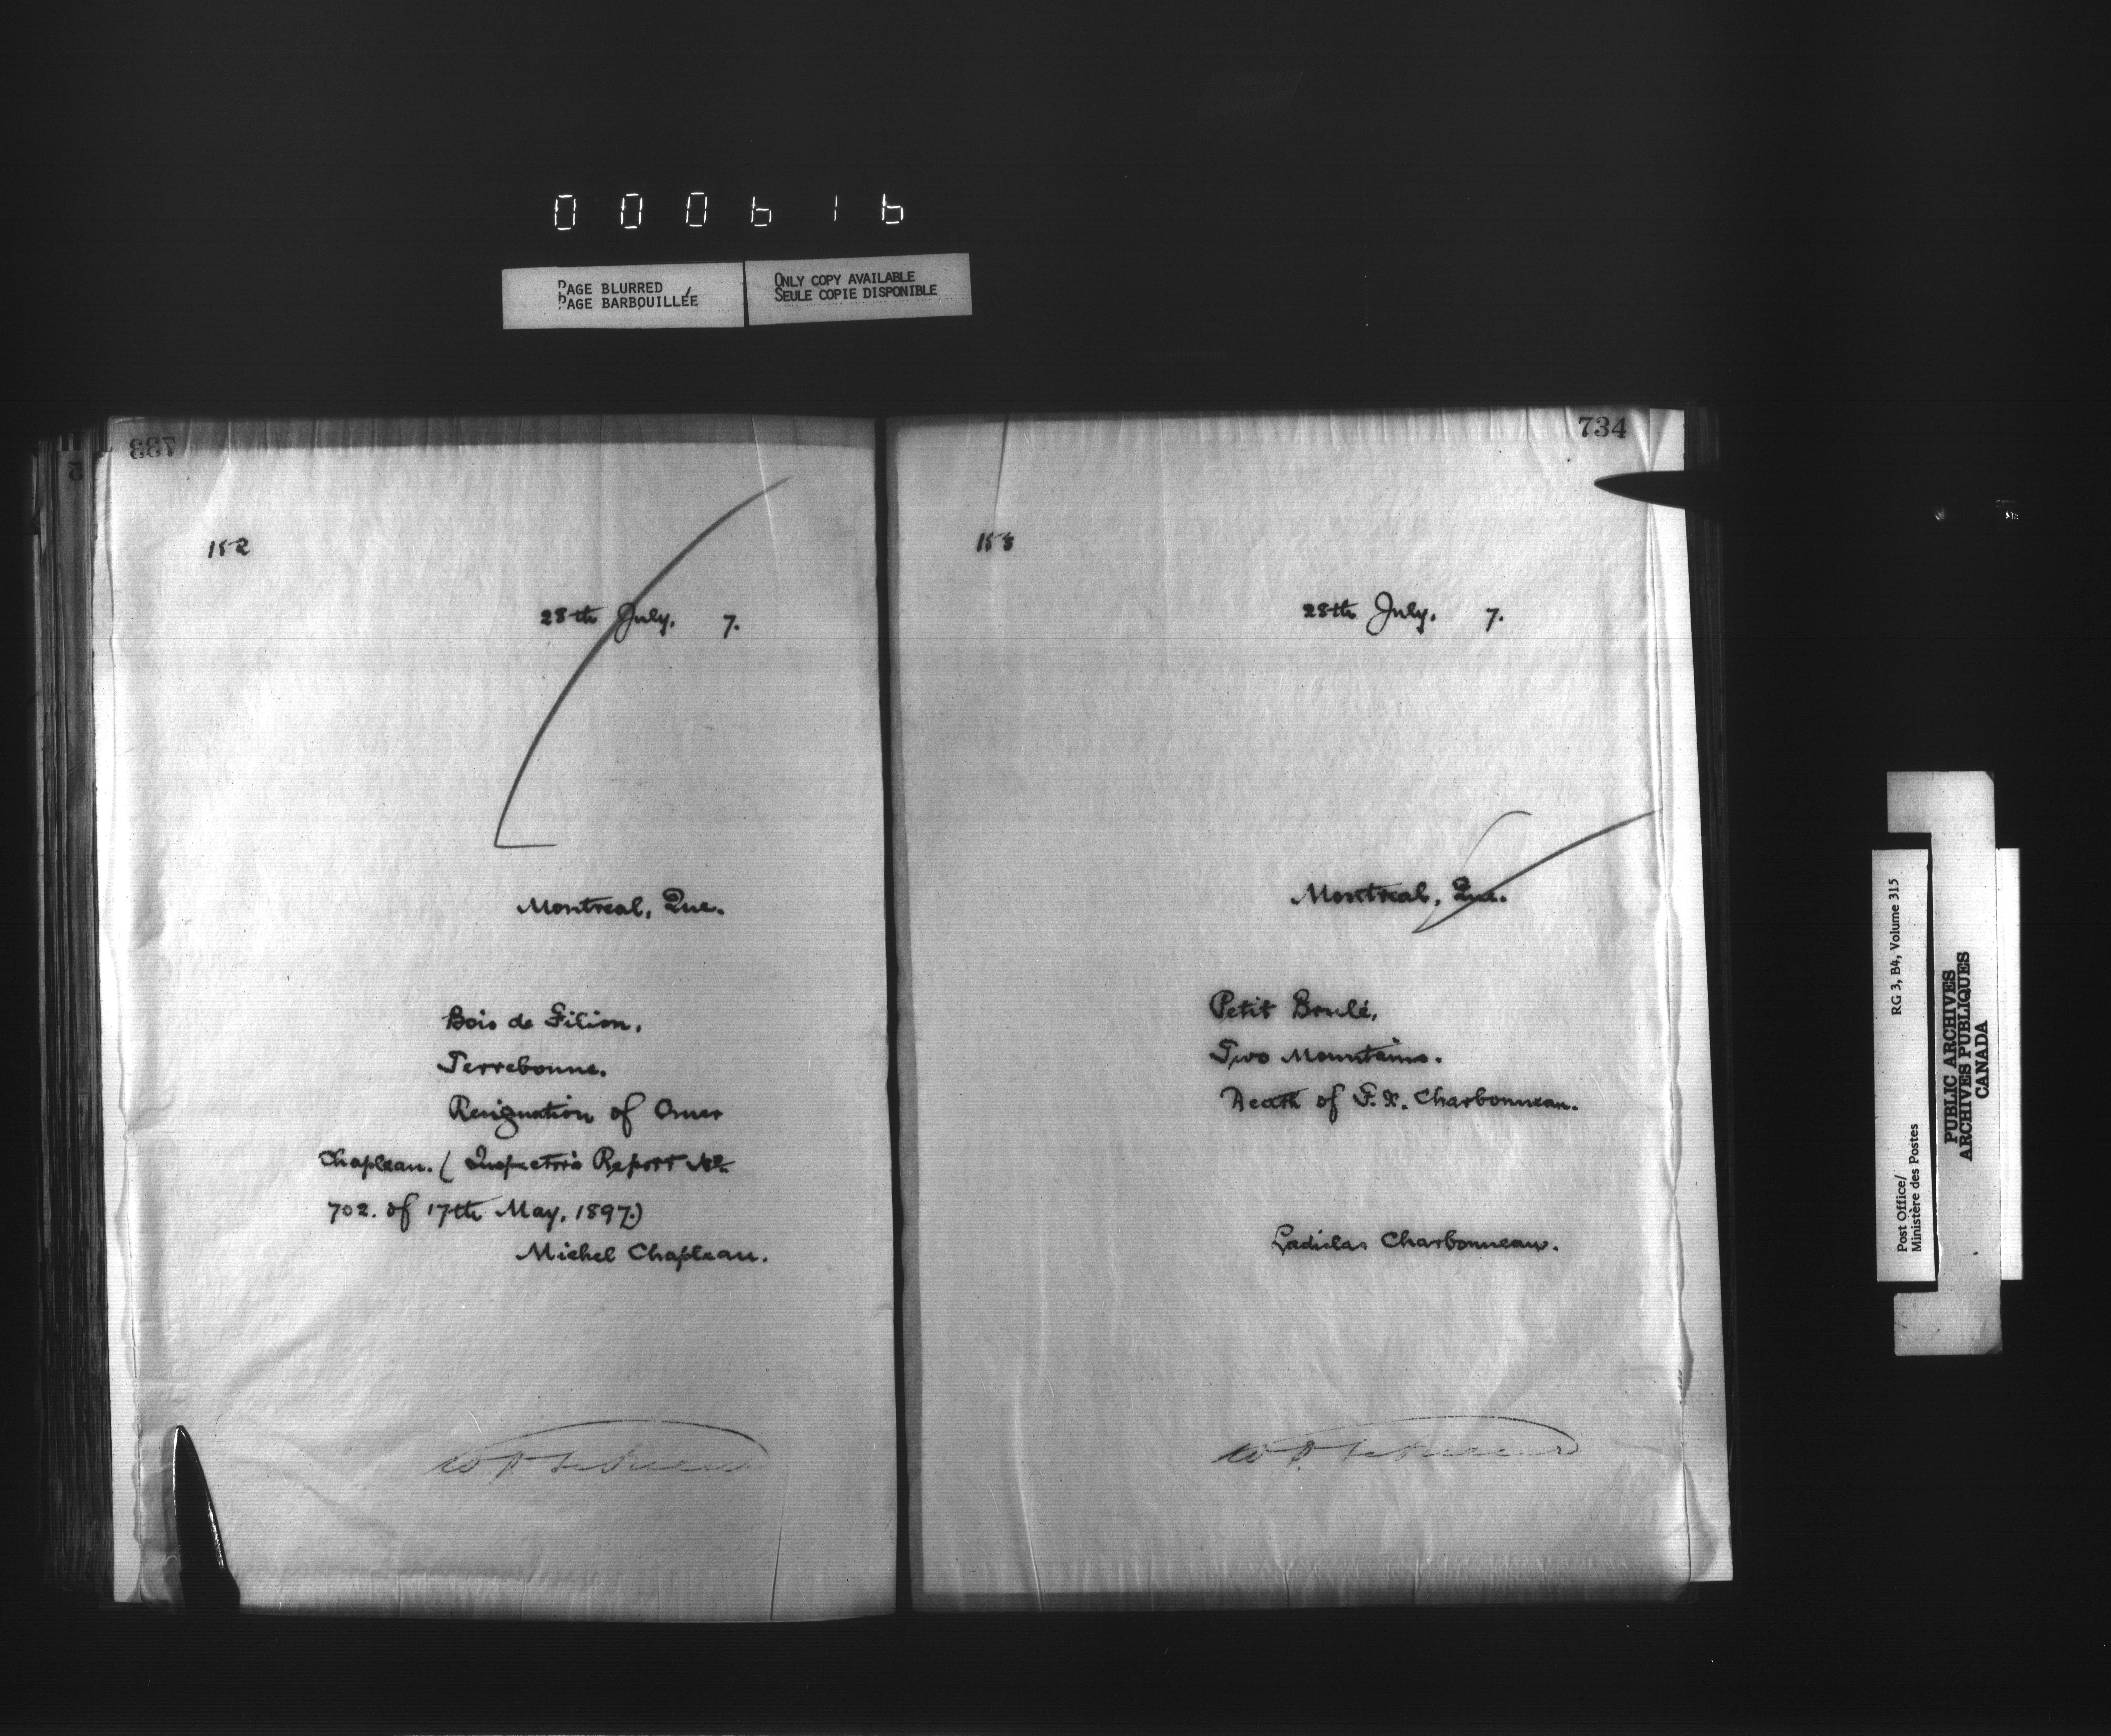 000616
PAGE BLURRED
PAGE BARBOUILLÉE
ONLY COPY AVAILABLE
SEULE COPIE DISPONIBLE
733
152
28th July, 7.
Montreal, Que.
Bois de Filion,
Terrebonne.
Resignation of Omer
Chapleau. (Inspector's Report No.
702. of 17th May, 1897.)
Michel Chapleau.
734
153
28th July, 7.
Montreal, Que.
Petit Brulé,
Two Mountains.
Death of F. X. Charbonneau.
Ladislas Charbonneau.
Post Office/ RG 3, B4, Volume 315
Ministère des Postes
PUBLIC ARCHIVES
ARCHIVES PUBLIQUES
CANADA